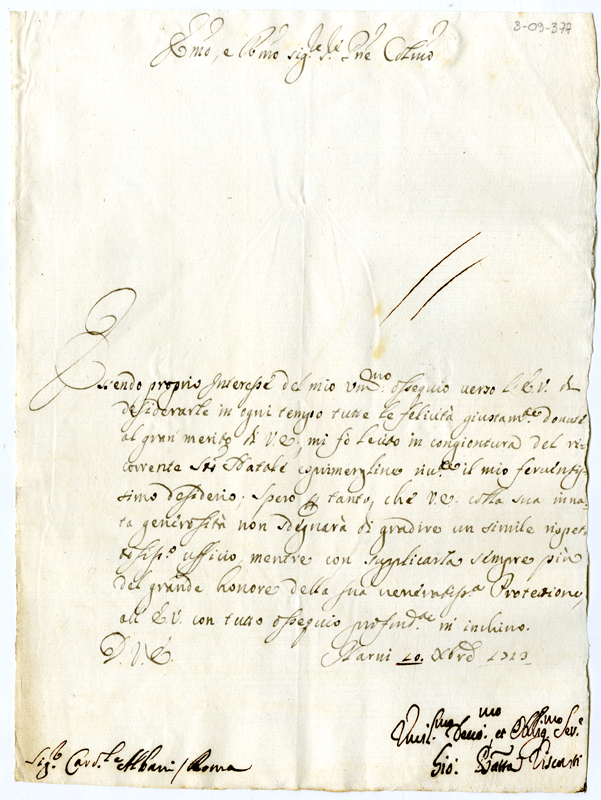 3-09-377
Emo, e Rmo Sig.re Sig.re Pne Colmo
Essendo proprio Interesse del mio Vm.mo ossequio verso l'E.V. di
desiderarle in ogni tempo tutte le felicità giustam.te dovute
al gran merito di V.E., mi fò lecito in congiontura del ri-
corrente Sto Natale esprimerglene riu.te il mio ferventis-
simo desiderio; Spero p tanto, che V.E. colla sua inna-
ta generosità non sdegnarà di gradire un simile rispet-
tosiss.o ufficio, mentre con supplicarla sempre più
del grande honore della sua veneratiss.a Protezione,
all'E.V. con tutto ossequio profond.te m'inchino.
D.V.E. Narni 10. Xbre 1713
Umil.mo Devo.mo et Obblig.mo Ser.e
Sig.r Card.le Albani / Roma Gio: Batta Visconti